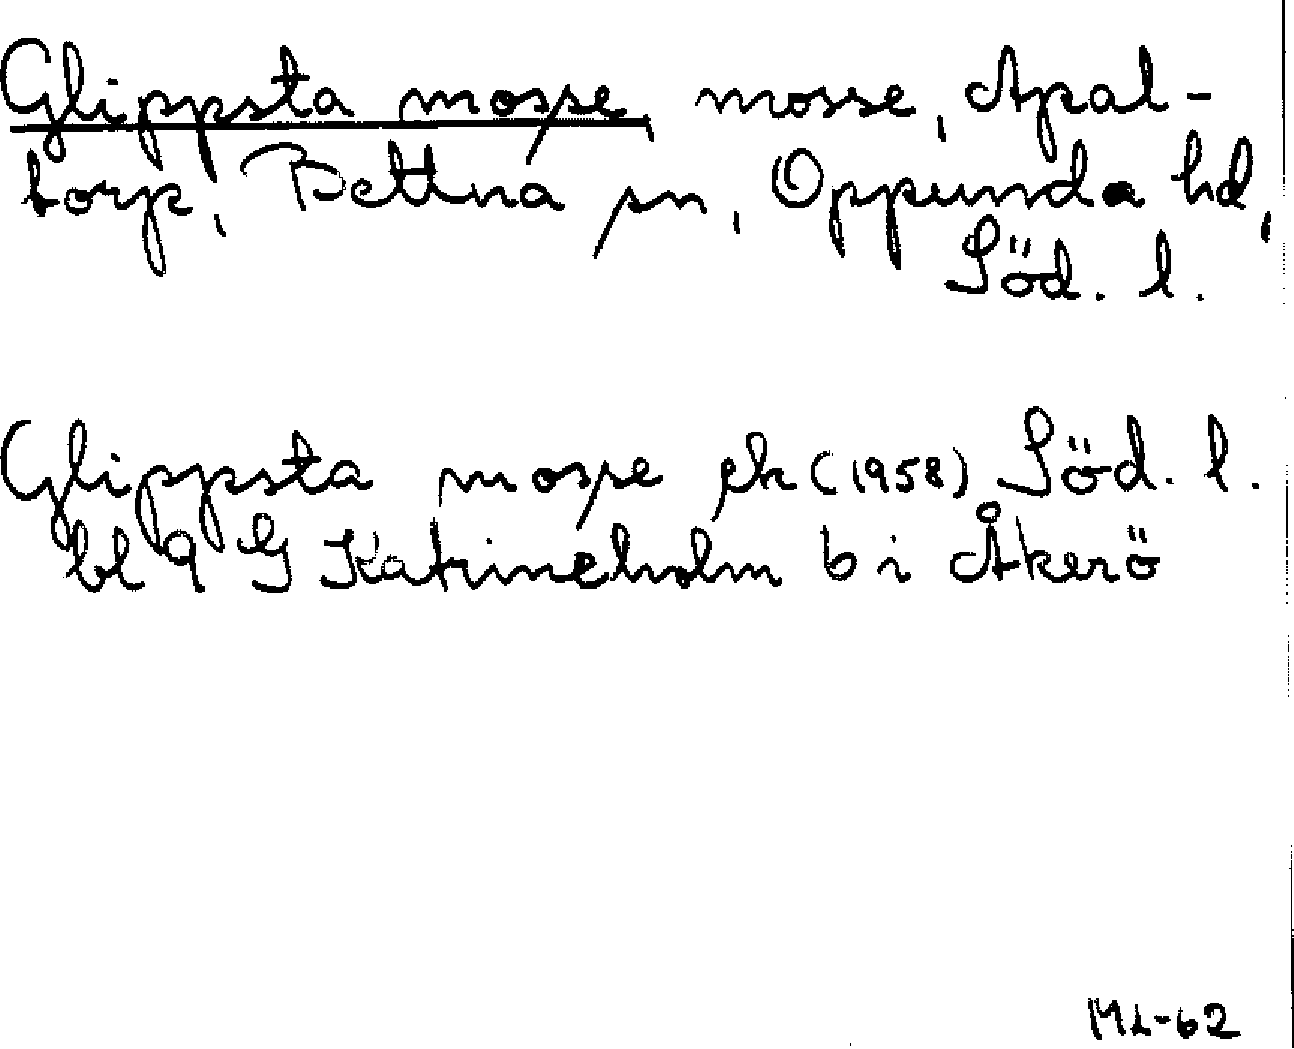 Glippsta mosse, mosse, Apal-
torp, Bettna sn, Oppunda hd,
Söd. l.
Glippsta mosse ek (1958) Söd. l.
bl 9 G Katrineholm b i Åkerö
ML-62